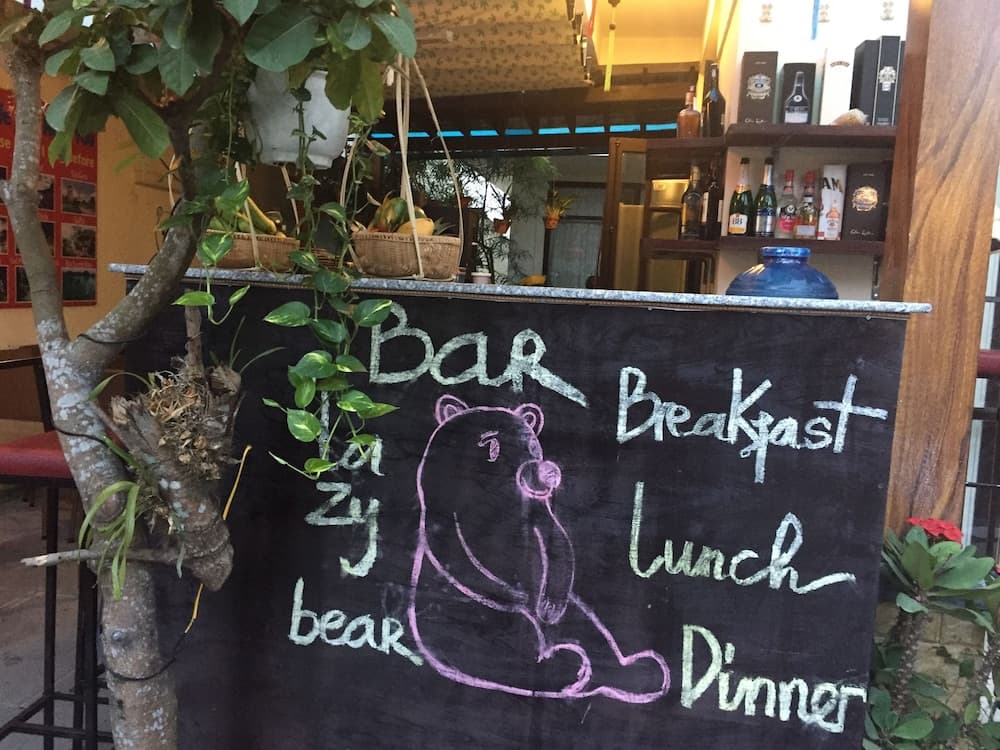 Bar
la
zy
bear
Breakfast
Lunch
Dinner